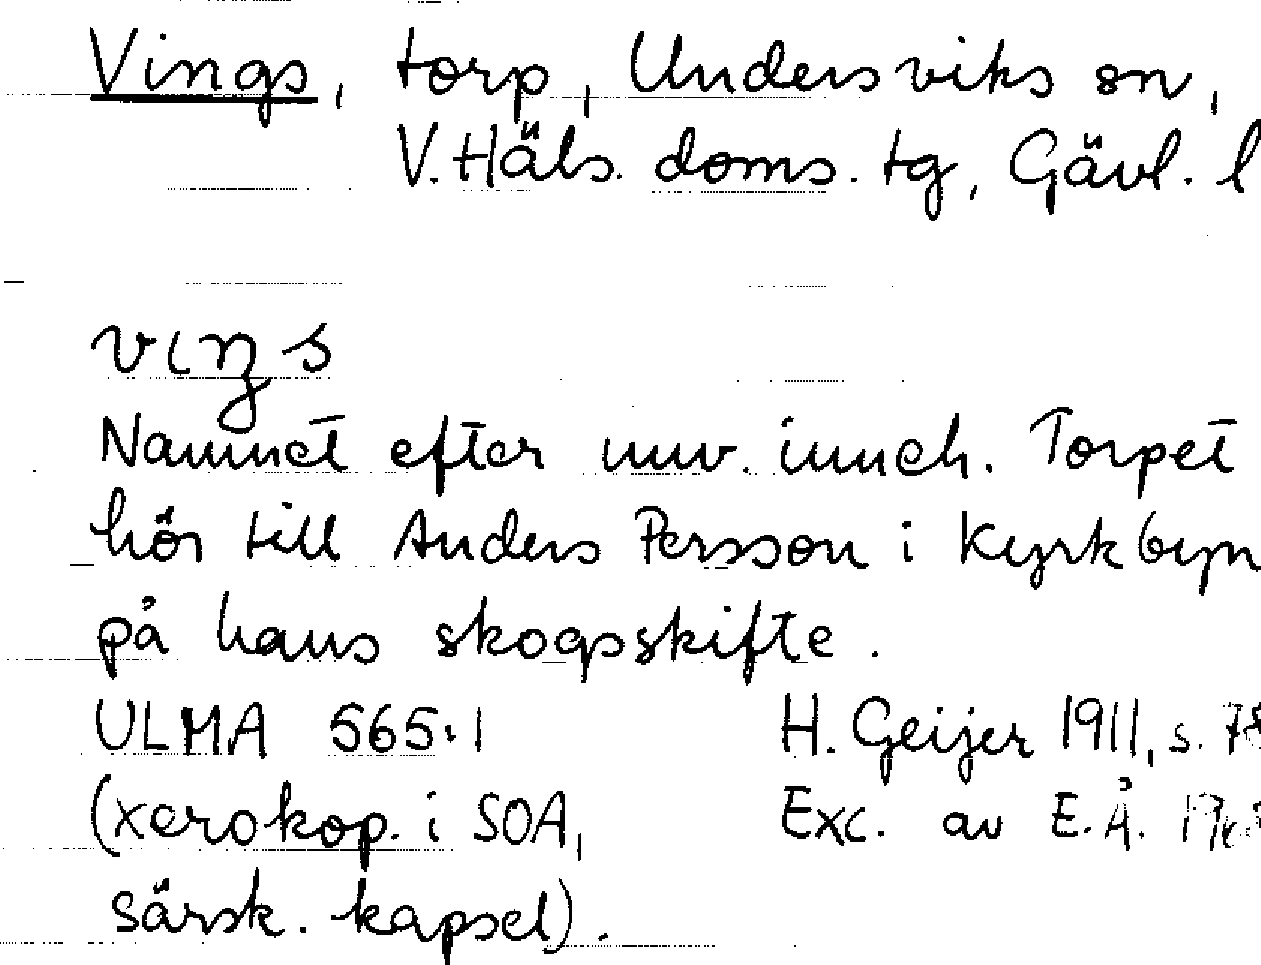 Vings, torp, Undersviks sn,
V. Häls. doms. tg, Gävl. l
viŋs
Namnet efter nuv. inneh. Torpet
hör till Anders Persson i Kyrkbyn
på hans skogsskifte.
ULMA 565:1 H. Geijer 1911, s. 78
(xerokop. i SOA, Exc. av E.Å.
särsk. kapsel).